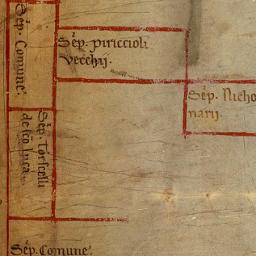 Sep. Comune.
Sep. piriccioli
vecchij.
Sep. Nicho
narij.
Sep. Torscelli
Sep. Comune.